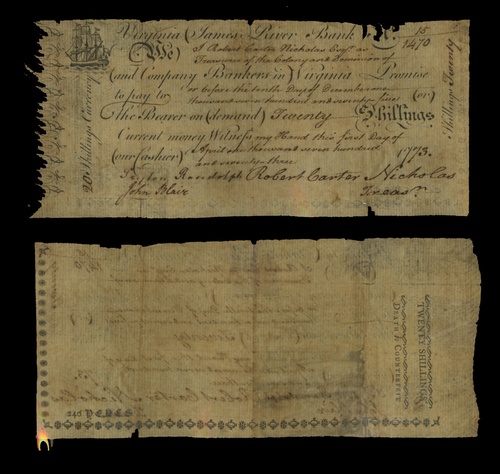 Virginia (James River Bank) No. 15
1470
(We) I Robert Carter Nicholas Esqr. as
Treasurer of the Colony and Dominion of
(and Company Bankers in) Virginia Promise
to pay to
or before the tenth Day of December one
thousand seven hundred and seventy five (or)
the Bearer on (demand) Twenty Shillings
Current money Witness my Hand this first Day of
(our Cashier)
April one thousand seven hundred
and seventy three 1773.
Peyton Randolph Robert Carter Nicholas
John Blair Treasr.
20 Shillings Currency
Shillings Twenty
TWENTY SHILLINGS
DEATH to COUNTERFEIT